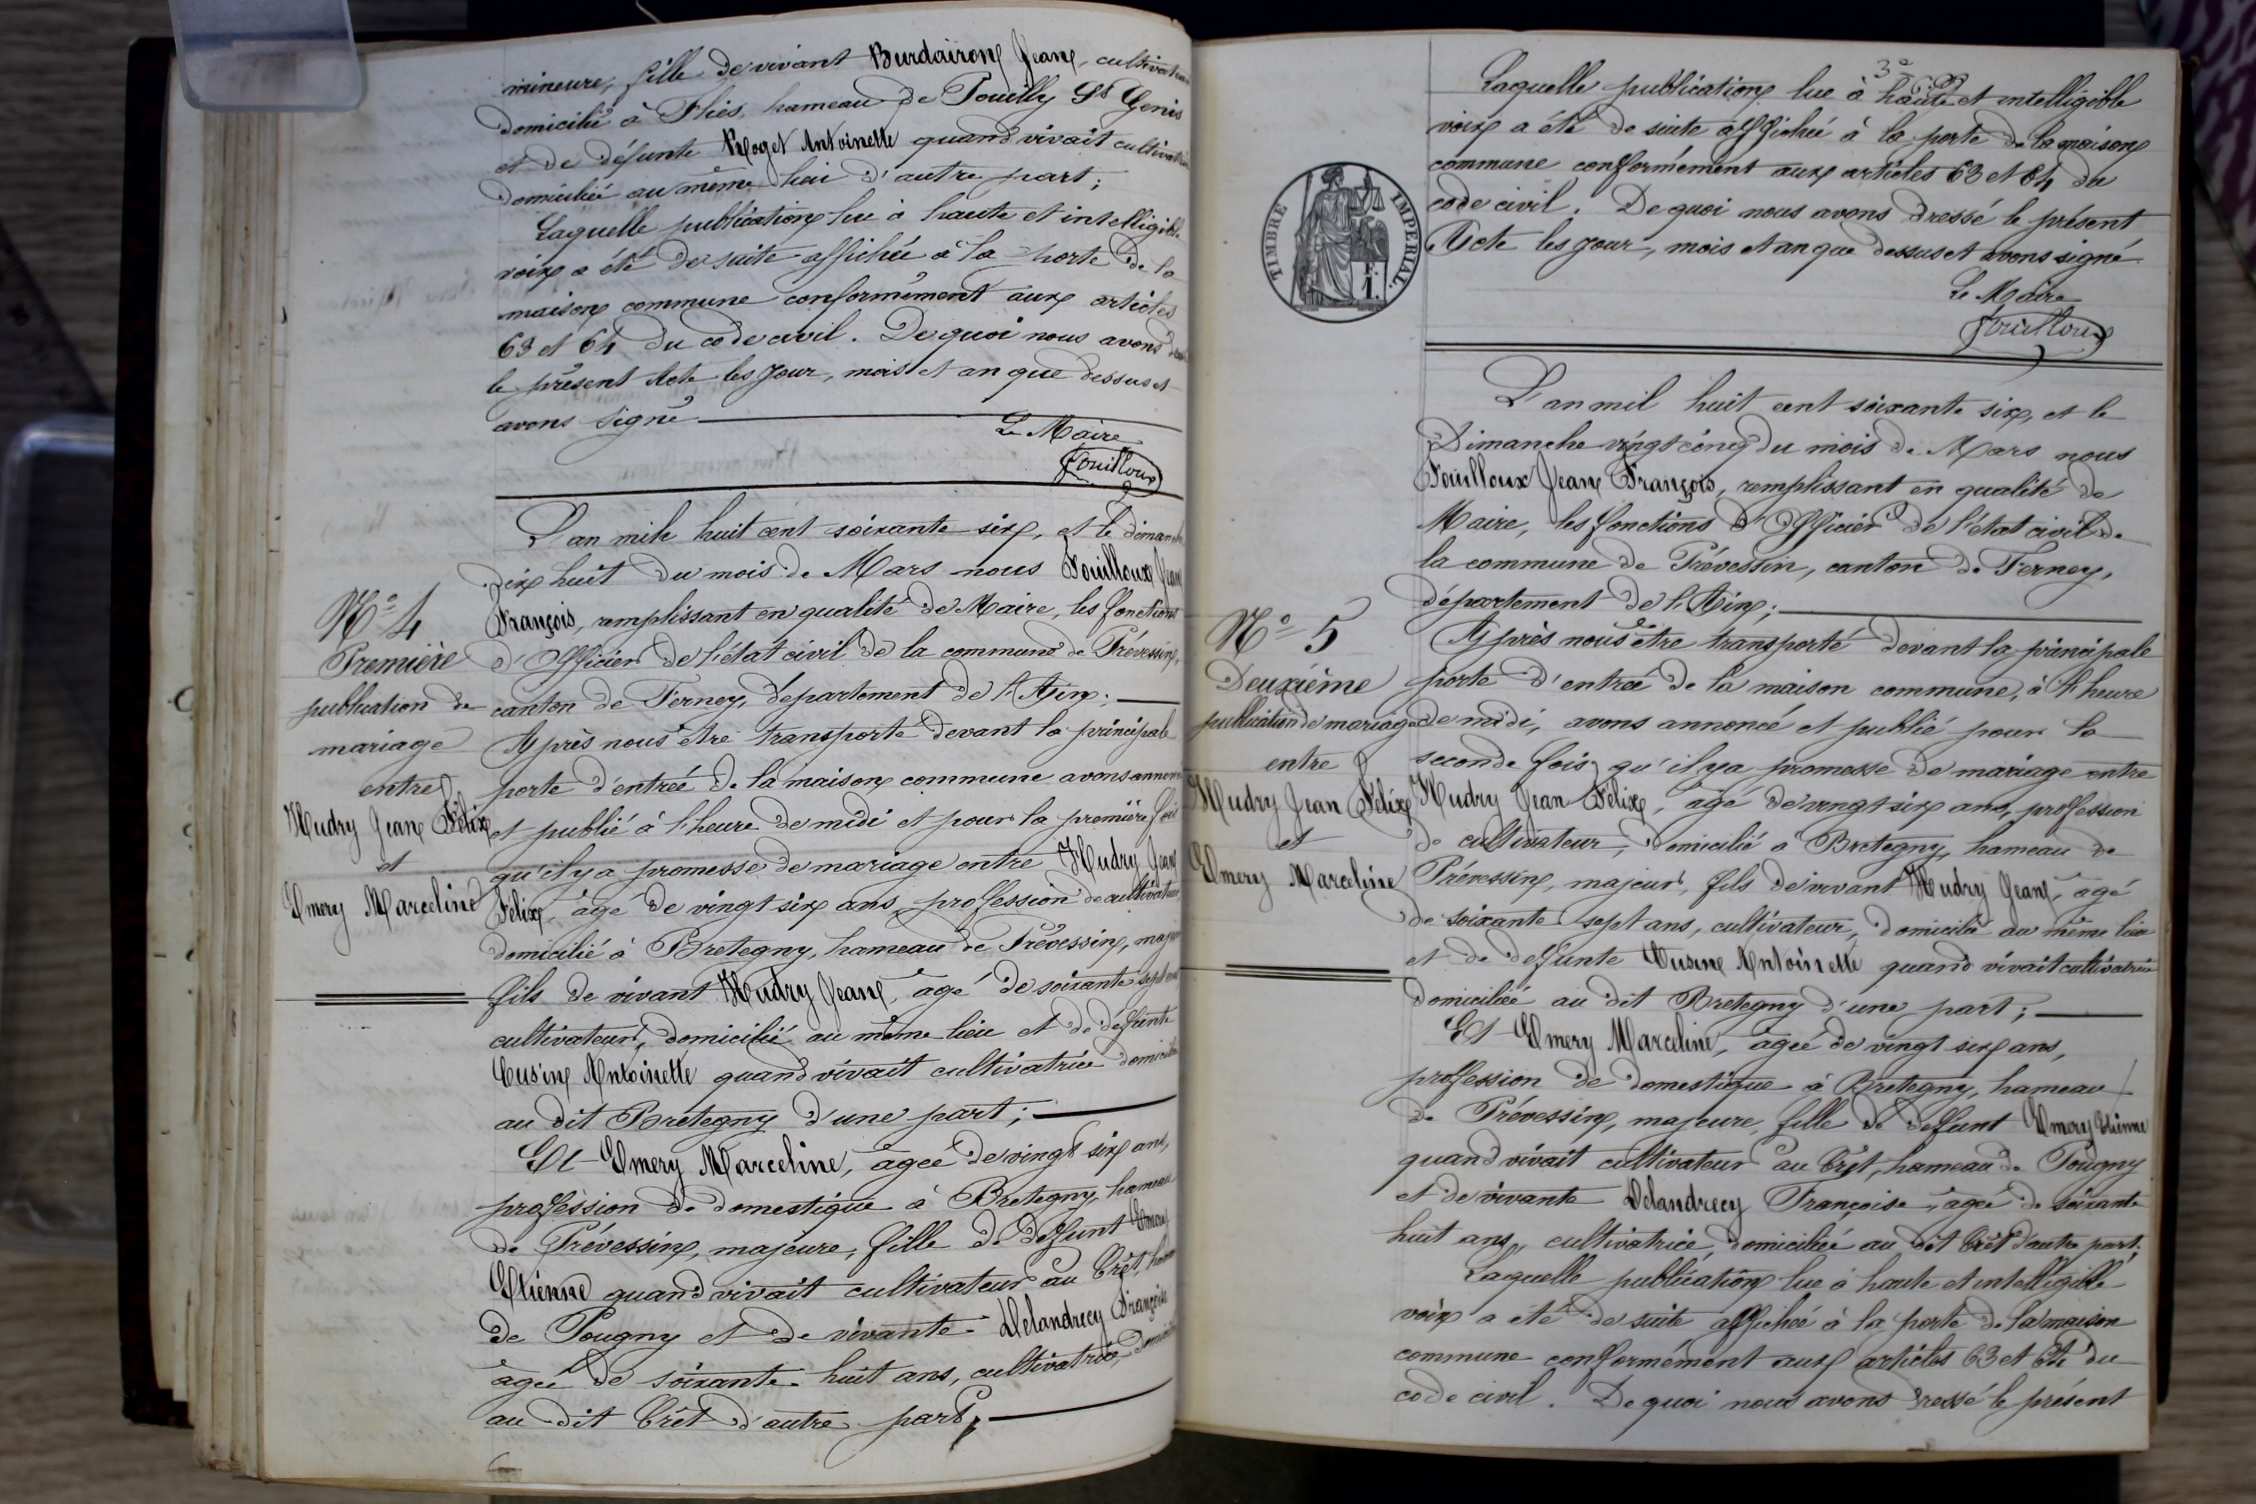 mineure, fille de vivant Burdairon Jean, cultivateur
domicilié à Flies, hameau de Pouilly St Genis
et de défunte Roget Antoinette quand vivait cultivatrice
domiciliée au même lieu d'autre part;
Laquelle publication lue à haute et intelligible
voix a été de suite affichée à la porte de la
maison commune conformément aux articles
63 et 64 du code civil. De quoi nous avons
le présent Acte les jour, mois et an que dessus et
avons signé
Le Maire
Fouilloux
L'an mile huit cent soixante six, et le dimanche
dix huit du mois de Mars nous Fouilloux Jean
François, remplissant en qualité de Maire, les fonctions
d'Officier de l'état civil de la commune de Prévessin,
canton de Ferney, département de l'Ain;
Après nous être transporté devant la principale
porte d'entrée de la maison commune avons annoncé
et publié à l'heure de midi et pour la première fois
qu'il y a promesse de mariage entre Hudry Jean
Félix, âgé de vingt six ans, profession de cultivateur,
domicilié à Bretegny, hameau de Prévessin, majeur
fils de vivant Hudry Jean, âgé de soixante sept ans
cultivateur, domicilié au même lieu et de défunte
Cusin Antoinette quand vivait cultivatrice domiciliée
au dit Bretegny d'une part;
Et Emery Marceline, âgée de vingt six ans,
profession de domestique à Bretegny, hameau
de Prévessin, majeure, fille de défunt Emery
Etienne quand vivait cultivateur au Crêt, hameau
de Pougny et de vivante Delandrecy Françoise
âgée de soixante huit ans, cultivatrice, domiciliée
au dit Crêt d'autre part;
No 4
Première
publication de
mariage
entre
Hudry Jean Félix
et
Emery Marceline
3e
Laquelle publication lue à haute et intelligible
voix a été de suite affichée à la porte de la maison
commune conformément aux articles 63 et 64 du
code civil. De quoi nous avons dressé le présent
Acte les jour, mois et an que dessus et avons signé
Le Maire
Fouilloux
TIMBRE IMPÉRIAL.
L'an mil huit cent soixante six, et le
Dimanche vingt cinq du mois de Mars nous
Fouilloux Jean François, remplissant en qualité de
Maire, les fonctions d'Officier de l'état civil de
la commune de Prévessin, canton de Ferney,
département de l'Ain;
Après nous être transporté devant la principale
porte d'entrée de la maison commune, à l'heure
de midi, avons annoncé et publié pour la
seconde fois qu'il y a promesse de mariage entre
Hudry Jean Félix, âgé de vingt six ans, profession
de cultivateur, domicilié à Bretegny, hameau de
Prévessin, majeur, fils de vivant Hudry Jean, âgé
de soixante sept ans, cultivateur, domicilié au même lieu
et de defunte Cusin Antoinette quand vivait cultivatrice
domiciliée au dit Bretegny d'une part;
Et Emery Marceline, âgée de vingt six ans,
profession de domestique à Bretegny, hameau
de Prévessin, majeure, fille de défunt Emery Etienne
quand vivait cultivateur au Crêt, hameau de Pougny
et de vivante Delandrecy Françoise, âgée de soixante
huit ans, cultivatrice, domiciliée au dit Crêt d'autre part;
Laquelle publication lue à haute et intelligible
voix a été de suite affichée à la porte de la maison
commune conformément aux articles 63 et 64 du
code civil. De quoi nous avons dressé le présent
No 5
Deuxième
publication de mariage
entre
Hudry Jean Félix
et
Emery Marceline